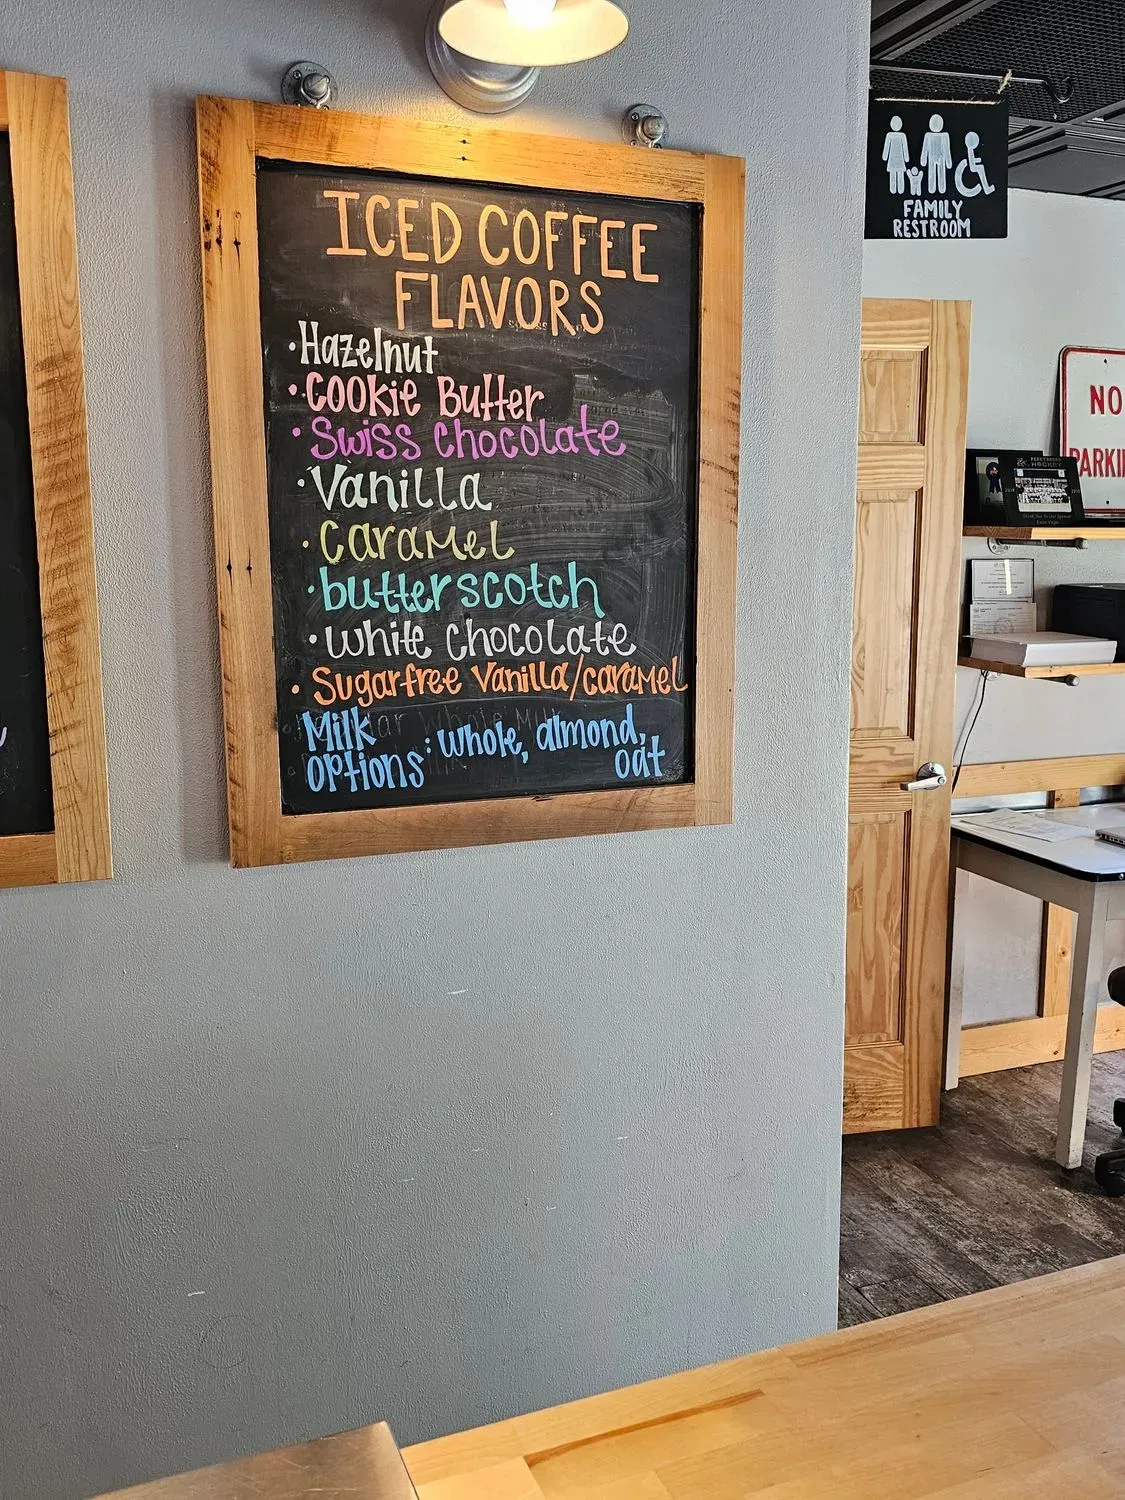 ICED COFFEE
FLAVORS
• Hazelnut
• Cookie Butter
• Swiss Chocolate
• Vanilla
• Caramel
• butterscotch
• White Chocolate
• Sugarfree Vanilla/caramel
Milk
options: Whole, almond,
oat
FAMILY
RESTROOM
NO
PARKI
HOCKEY